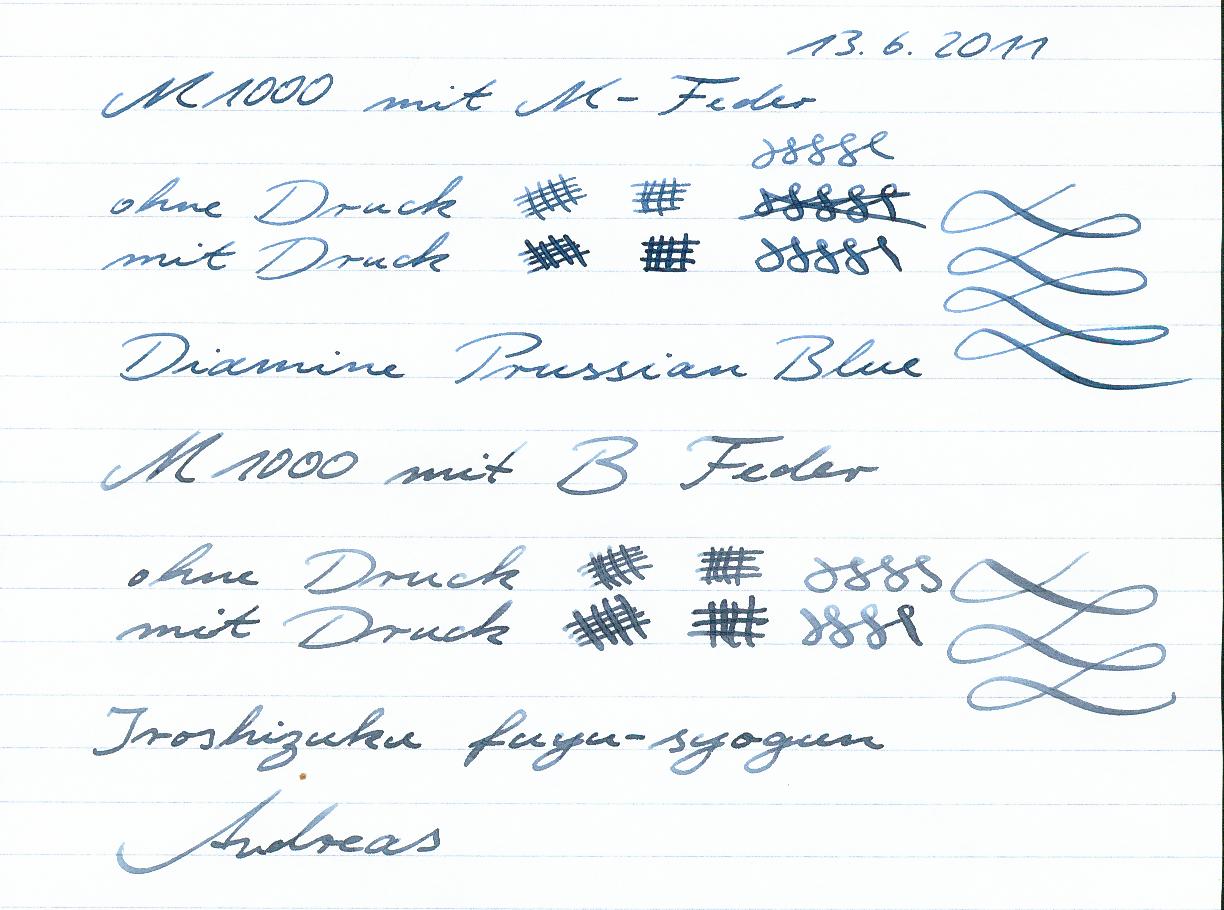 13. 6. 2011
M1000 mit M-Feder
ohne Druck
mit Druck
Diamine Prussian Blue
M1000 mit B Feder
ohne Druck
mit Druck
Iroshizuku fuyu-syogun
Andreas